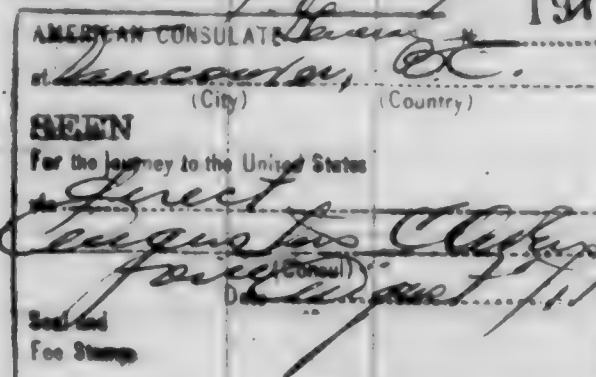 191
AMERICAN CONSULATE
at Vancouver, B.C.
(City) (Country)
SEEN
For the journey to the United States
via direct
Augustus
(Consul)
Date
Seal and
Fee Stamp